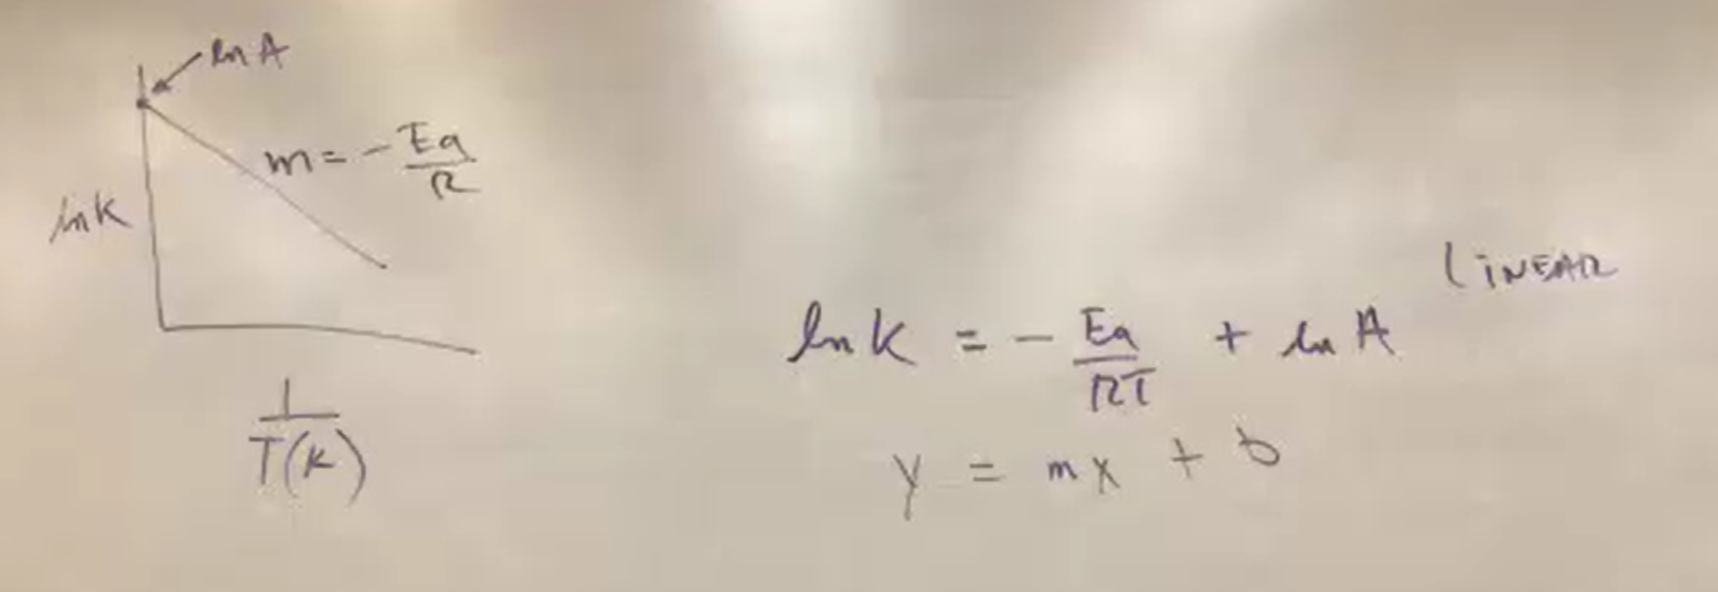 ln A
m = - Ea/R
ln k
1/T(K)
LINEAR
ln k = - Ea/RT + ln A
y = mx + b